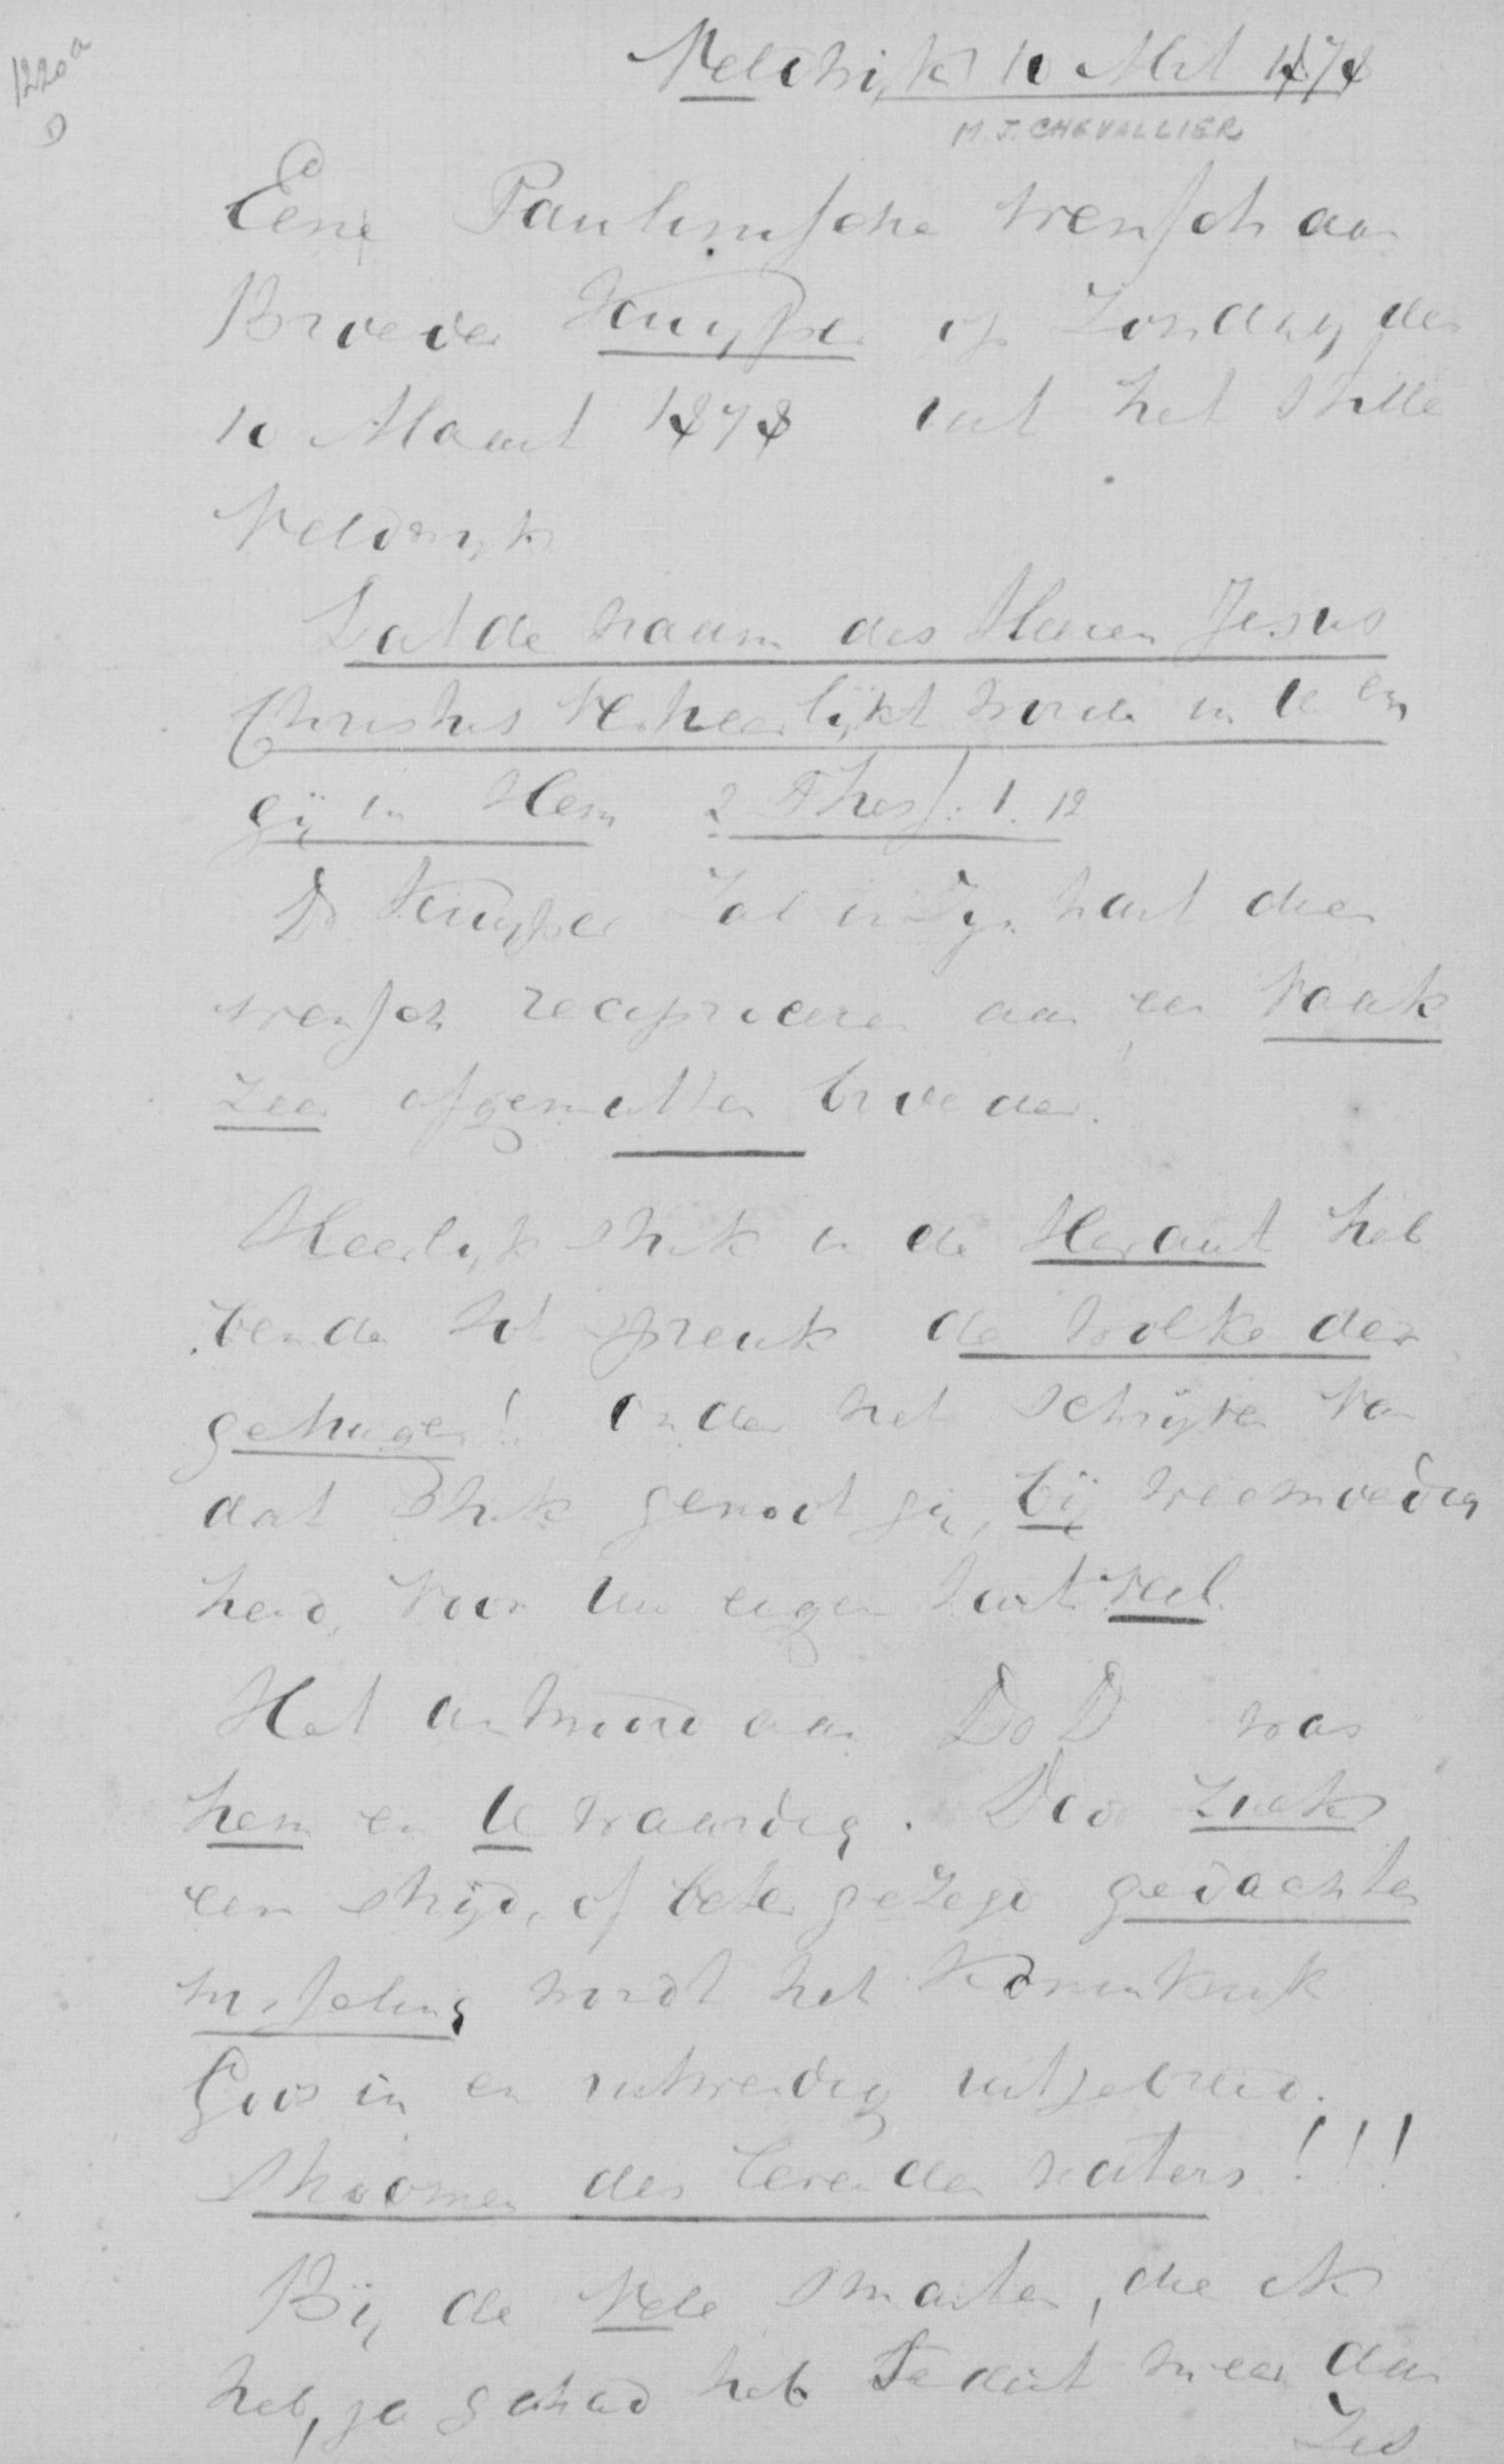 1220a
D
Veldwijk 10 Mrt 1878
M. J. CHEVALLIER
Eene Paulinische wensch aan
Broeder Kuyper op Zondag den
10 Maart 1878 uit het stille
Veldwijk
Dat de naam des Heeren Jesus
Christus verheerlijkt worde in U en
gij in Hem 2 Thess. 1. 12
Dr Kuyper zal in zijn hart dien
wensch reciproceren aan een vaak
zeer afgematten broeder.
Heerlijk stuk in de Heraut heb
bende tot spreuk de wolke der
getuigen! Onder het schrijven van
dat stuk genoot gij, bij weemoedig
heid, voor Uw eigen hart veel.
Het antwoord aan Ds D was
hem en U waardig. Door zulk
een strijd, of beter gezegd gedachten
wisseling wordt het Koninkrijk
Gods in en uitwendig uitgebreid.
Stroomen des levenden waters!!!
Bij de vele smarten, die ik
heb, ja gehad heb sedert meer dan
zes